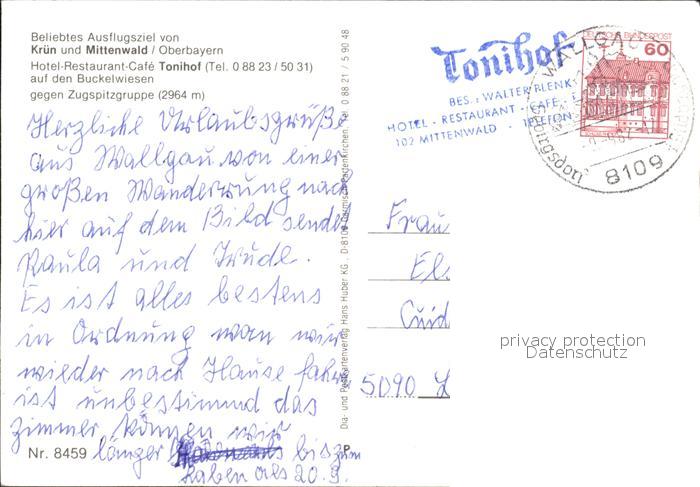 Beliebtes Ausflugsziel von
Krün und Mittenwald / Oberbayern
Hotel-Restaurant-Café Tonihof (Tel. 0 88 23 / 50 31)
auf den Buckelwiesen
gegen Zugspitzgruppe (2964 m)
Herzliche Urlaubsgrüße
aus Wallgau von einer
großen Wanderung nach
hier auf dem Bild sendet
Paula und Trude.
Es ist alles bestens
in Ordnung wan wir
wieder nach Hause fahren
ist unbestimmd das
Zimmer können wir
länger bis zum
haben als 20.9.
Nr. 8459
Dia- und Postkartenverlag Hans Huber KG . D-8100 Garmisch-Partenkirchen, Tel. 0 88 21 / 5 90 48
Tonihof
BES.: WALTER BLENK
HOTEL - RESTAURANT - CAFÉ
102 MITTENWALD - TELEFON
DEUTSCHE BUNDESPOST
60
WALLGAU
8109
Frau
El
Cuid
5090 L
privacy protection
Datenschutz